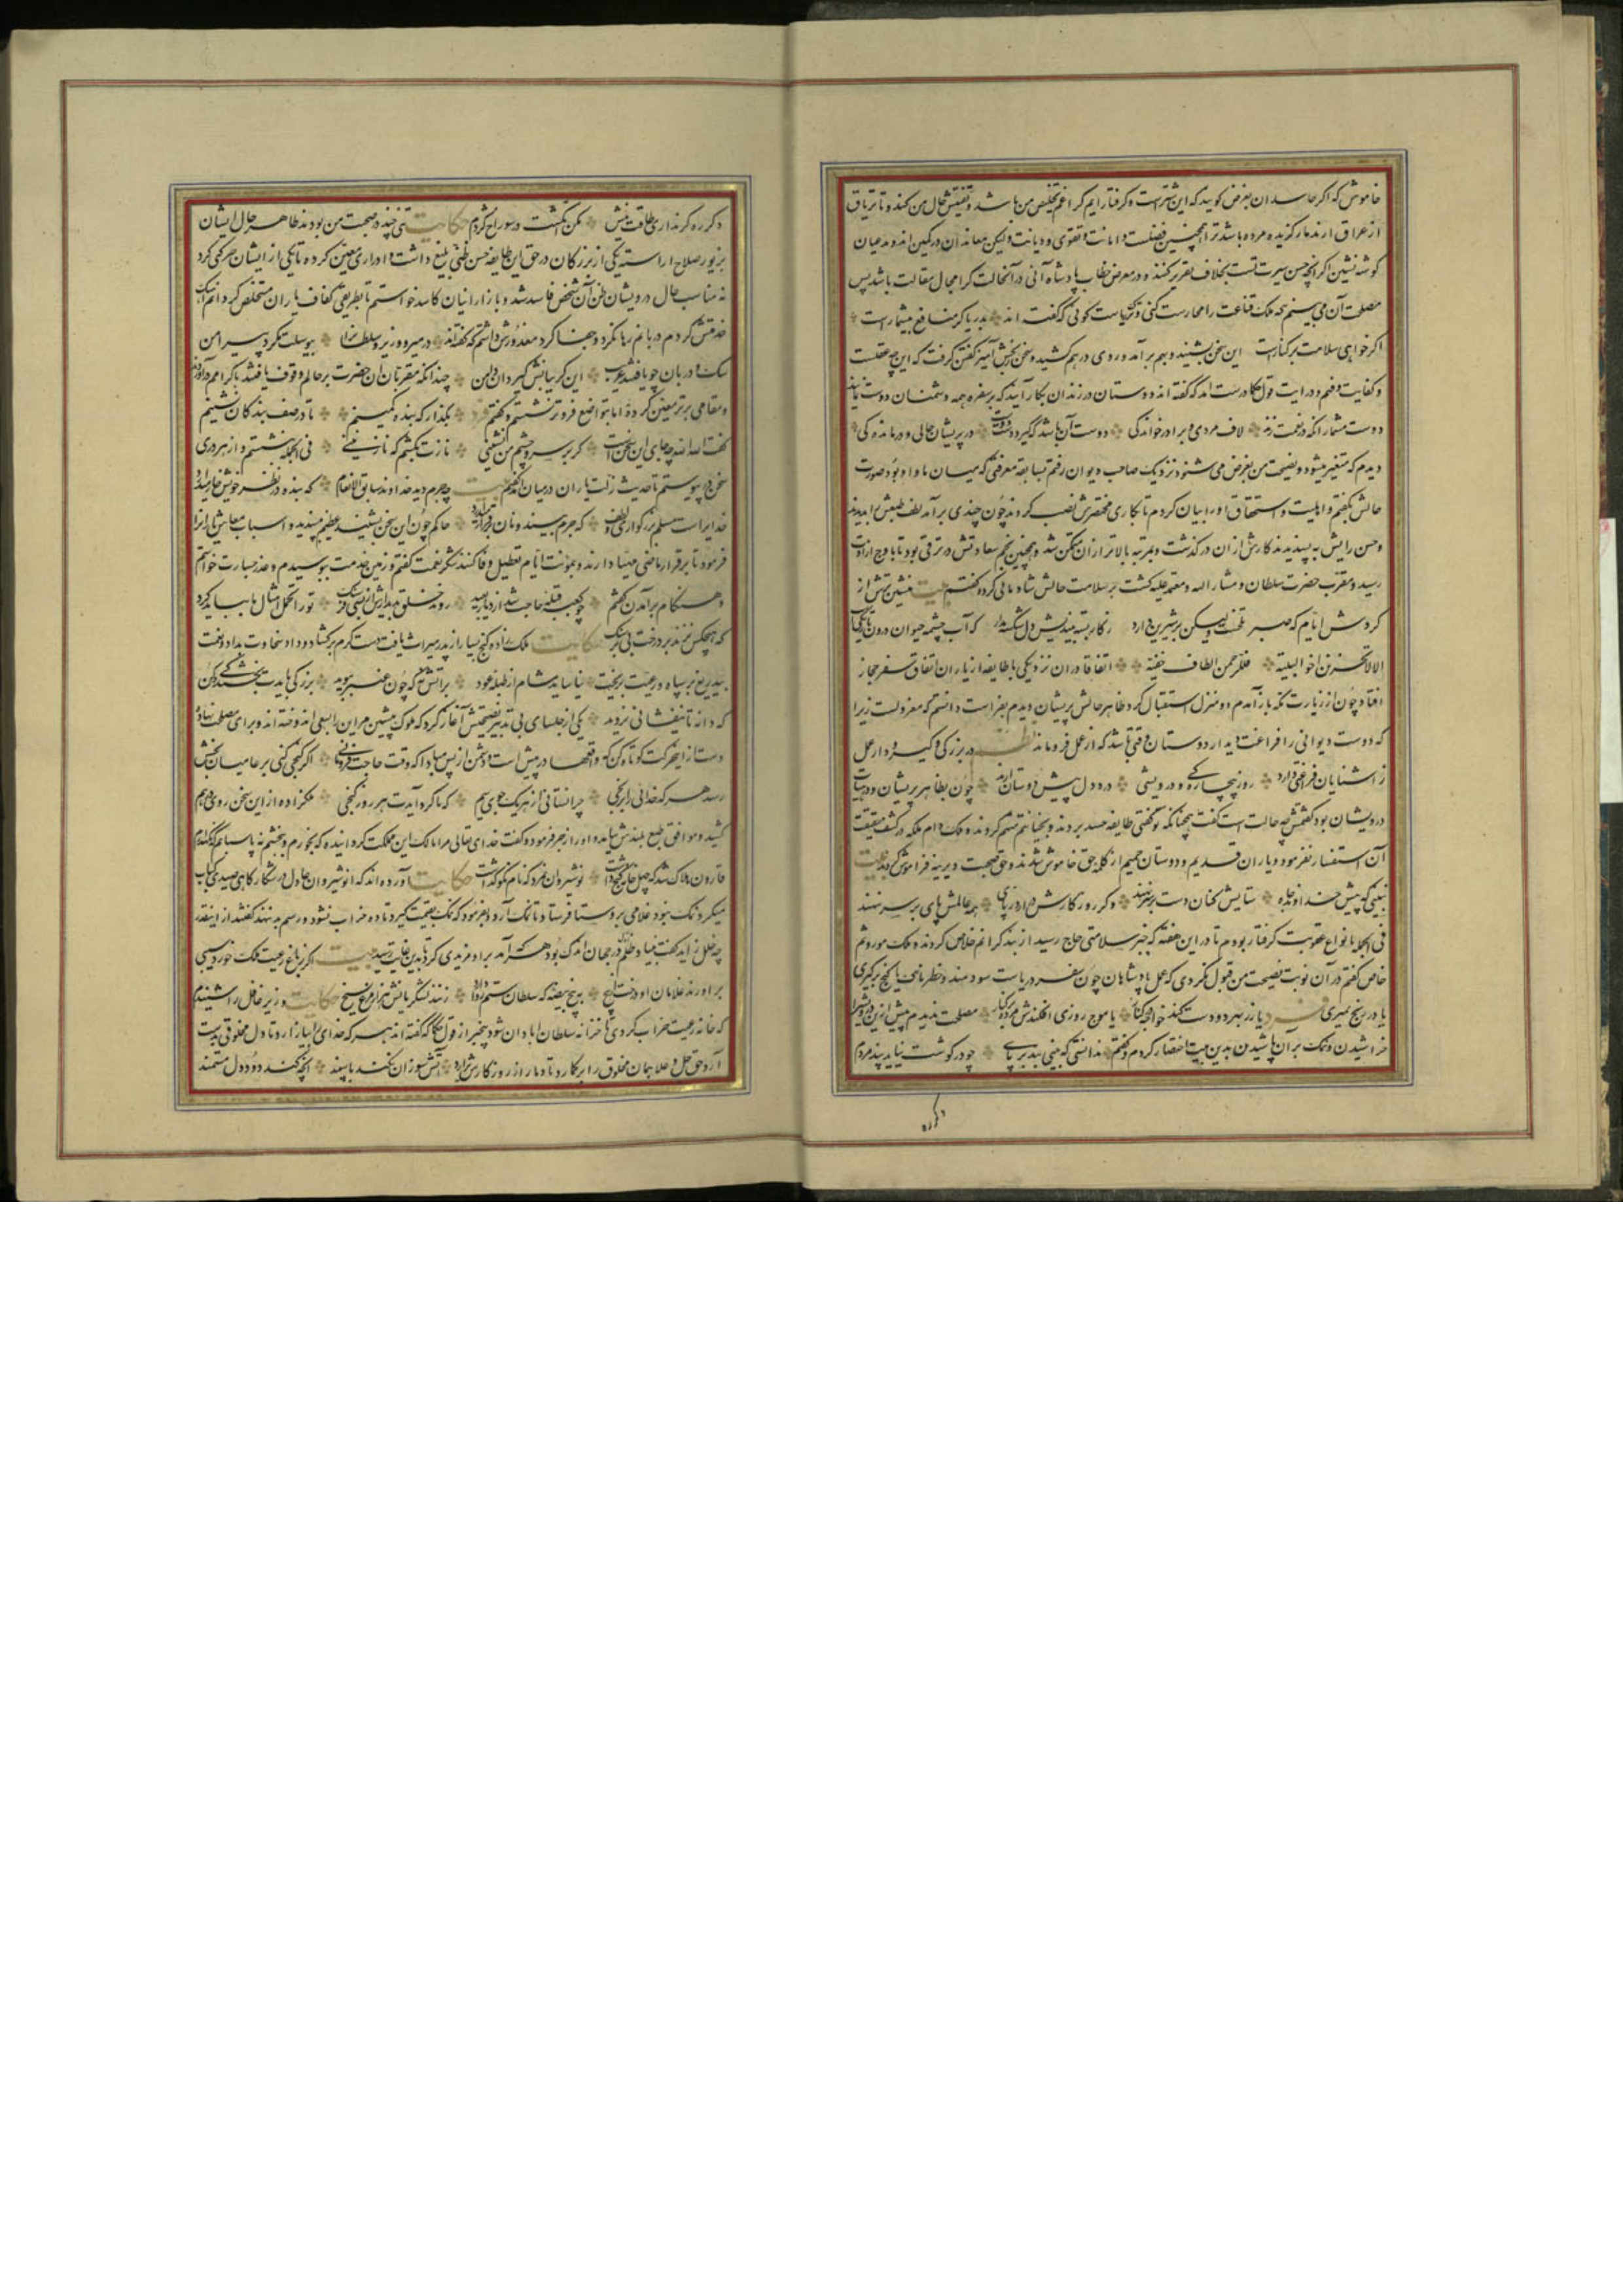 خاموش که اگر حاسدان بغرض گویند که این شترست و گرفتار آیم کرا غم تخلیص من باشد و تفتیش حال من کند و تا تریاق
از عراق آرند مار گزیده مرده باشد ترا همچنین فضیلت و امانت و تقوی و دیانت ولیکن معاندان در کمین اند و مدعیان
گوشه نشین اگر آنچه حسن سیرت تست بخلاف تقریر کنند و در معرض خطاب پادشاه آئی در آنحالت کرا مجال مقالت باشد پس
مصلحت آن می بینم که ملک قناعت را حراست کنی و ترک ریاست گوئی که گفته اند بدریا در منافع بیشمارست
اگر خواهی سلامت بر کنارست این سخن بشنید و بهم برآمد و روی درهم کشید و سخن رنجش آمیز گفتن گرفت که این چه عقلست
و کفایت و فهم و درایت قول حکما درست آمد که گفته اند دوستان در زندان بکار آیند که بر سفره همه دشمنان دوست نمایند
دوست مشمار آنکه در نعمت زند لاف مردی و برادر خواندگی دوست آن باشد که گیرد دست دوست در پریشان حالی و درماندگی
دیدم که متغیر میشود و نصیحت من بغرض می شنود نزدیک صاحب دیوان رفتم بسابقه معرفتی که میان ما و او بود صورت
حالش بگفتم و اهلیت و استحقاق او را بیان کردم تا بکاری مختصرش نصب کردند چون چندی برآمد لطف طبعش را بدیدند
و حسن رایش به پسندیدند کارش از آن درگذشت و بمرتبه بالاتر از آن متمکن شد و همچنین نجم سعادتش در ترقی بود تا باوج ارادت
رسید و مقرب حضرت سلطان و مشار الیه و معتمد علیه گشت بر سلامت حالش شادمانی کرده گفتم بیت منشین ترش از
گردش ایام که صبر تلخست ولیکن بر شیرین دارد ز کار بسته میندیش و دل شکسته مدار که آب چشمه حیوان درون تاریکیست
الا لا تحزنن اخو البلیة فللرحمن الطاف خفیة اتفاقا در آن نزدیکی با طایفه از یاران اتفاق سفر حجاز
افتاد چون از زیارت مکه باز آمدم دو منزل استقبال کرد ظاهر حالش پریشان دیدم بفراست دانستم که معزولست زیرا
که دوست دیوانی را فراغت دیدار دوستان وقتی باشد که از عمل فرو ماند نظم در بزرگی و گیر و دار عمل
ز آشنایان فراغتی دارد روز بیچارگی و درویشی درد دل پیش دوستان آرد چون بظاهر پریشان و در هیات
درویشان بود گفتمش چه حالت است گفت چنانکه تو گفتی طایفه حسد بردند و بخیانتم متهم کردند و ملک دام ملکه در کشف حقیقت
آن استفسار نفرمود و یاران قدیم و دوستان حمیم از کلمه حق خاموش شدند و حق صحبت دیرینه فراموش کردند بیت
نبینی که پیش خداوند جاه ستایش کنان دست بر بر نهند و گر روزگارش درآرد ز پای همه عالمش پای بر سر نهند
فی الجمله بانواع عقوبت گرفتار بودم تا درین هفته که خبر سلامتی حاج رسید از بند گرانم خلاص کردند و ملک موروثم
خاص گفتم در آن نوبت نصیحت من قبول نکردی که عمل پادشاهان چون سفر دریاست سودمند و خطرناک یا گنج برگیری
یا در رنج میری فرد یا زر بهر دو دست کند خواجه کنار یا موج روزی افکندش مرده بر کنار مصلحت ندیدم بیش ازین درونش را
خراشیدن و نمک بر آن پاشیدن بدین بیت اختصار کردم و گفتم ندانستی که بینی بند بر پای چو در گوشت نیاید پند مردم
دگر ره
دگر ره گر نداری طاقت نیش مکن انگشت در سوراخ کژدم حکایت تنی چند در صحبت من بودند ظاهر حال ایشان
بزیور صلاح آراسته یکی از بزرگان در حق این طایفه حسن ظنی بلیغ داشت و ادراری معین کرده تا یکی از ایشان حرکتی کرد
نه مناسب حال درویشان ظن آن شخص فاسد شد و بازار اینان کاسد خواستم تا بطریقی کفاف یاران مستخلص گردانم آهنگ
خدمتش کردم دربانم رها نکرد و جفا کرد معذورش داشتم که گفته اند در میر و وزیر و سلطانرا بی وسیلت مگرد پیرامن
سگ و دربان چو یافتند غریب این گریبانش گیرد آن دامن چندانکه مقربان آن حضرت بر حالم وقوف یافتند باکرامم درآوردند
و مقامی برتر معین کردند اما بتواضع فروتر نشستم و گفتم فرد بگذار که بنده کمینم تا در صف بندگان نشینم
گفت الله الله چه جای این سخن است گر بر سر و چشم من نشینی نازت بکشم که نازنینی فی الجمله بنشستم و از هر دری
سخن در پیوستم تا حدیث زلت یاران در میان آمد گفتم بیت چه جرم دید خداوند سابق الانعام که بنده در نظر خویش خوار میدارد
خدایراست مسلم بزرگواری و لطف که جرم بیند و نان برقرار میدارد حاکم چون این سخن بشنید عظیم پسندید و اسباب معاش یارانرا
فرمود تا بر قرار ماضی مهیا دارند و مؤنت ایام تعطیل وفا کنند شکر نعمت گفتم و زمین خدمت ببوسیدم و عذر جسارت خواستم
و هنگام برآمدن گفتم چو کعبه قبله حاجت شد از دیار بعید روند خلق بدیدارش از بسی فرسنگ تو را تحمل امثال ما بباید کرد
که هیچکس نزند بر درخت بی بر سنگ حکایت ملک زاده گنج بسیار از پدر میراث یافت دست کرم برگشاد و داد سخاوت بداد و نعمت
بیدریغ بر سپاه و رعیت بریخت نیاساید مشام از طبله عود بر آتش نه که چون عنبر ببوید بزرگی بایدت بخشندگی کن
که دانه تا نیفشانی نروید یکی از جلسای بی تدبیر نصیحتش آغاز کرد که ملوک پیشین مر این را بسعی اندوخته اند و برای مصلحت نهاده
دست از این حرکت کوتاه کن که واقعها در پیش است و دشمن از پس مبادا که وقت حاجت فرومانی اگر گنجی کنی بر عامیان بخش
رسد هر کدخدائی را برنجی چرا نستانی از هر یک جوی سیم که گرد آیدت هر روز گنجی ملکزاده از این سخن روی درهم
کشید و موافق طبع بلندش نیامد و او را زجر فرمود و گفت خدای تعالی مرا مالک این مملکت گردانیده که بخورم و ببخشم نه پاسبانم که نگهدارم
قارون هلاک شد که چهل خانه گنج داشت نوشیروان نمرد که نام نکو گذاشت حکایت آورده اند که انوشیروان عادل در شکارگاهی صیدی کباب
میکرد نمک نبود غلامی بروستا فرستاد تا نمک آرد و بفرمود که نمک بقیمت گیرد تا ده خراب نشود و رسم بد ننهند گفتند ازاینقدر
چه خلل زاید گفت بنیاد ظلم در جهان اندک بود هر که آمد برو مزیدی کرد تا بدین غایت رسید بیت اگر ز باغ رعیت ملک خورد سیبی
برآورند غلامان او درخت از بیخ به پنج بیضه که سلطان ستم روا دارد زنند لشکریانش هزار مرغ بسیخ حکایت وزیر غافل را شنیدم
که خانه رعیت خراب کردی تا خزانه سلطان آبادان شود بیخبر از قول حکما که گفته اند هر که خدای را بیازارد تا دل مخلوقی بدست
آرد حق جل و علا همان مخلوق را برگمارد تا دمار از روزگارش برآرد آتش سوزان نکند با سپند آنچه کند دود دل مستمند